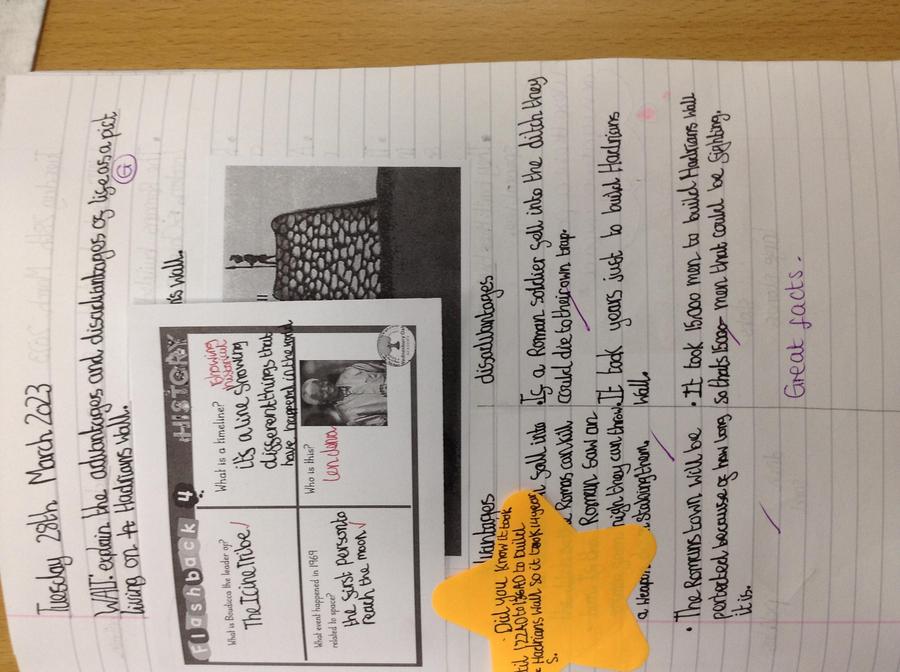 Tuesday 28th March 2023
WALT: explain the advantages and disadvantages of life as a pict
living on Hadrians Wall.
G
ns wall.
Flashback 4
HISTORY
What is Boudicca the leader of?
The Icine Tribe
What is a timeline?
showing
historical
its a line showing
different things that
have happend in the
What event happened in 1969
related to space?
the first person to
reach the moon
Who is this?
disadvantages
• If a Roman soldier fell into the ditch they
could die to their own trap.
It took years just to build Hadrians
Wall.
• It took 15,000 men to build Hadrians Wall
so thats 15000 men that could be fighting.
Vantages
fall into
Romas can kill
Roman saw an
might they can throw
a weapon stabing them.
• The Romans town will be
protected because of how long
it is.
Did you know it took
to build
Hadrians Wall so it took
Great facts.